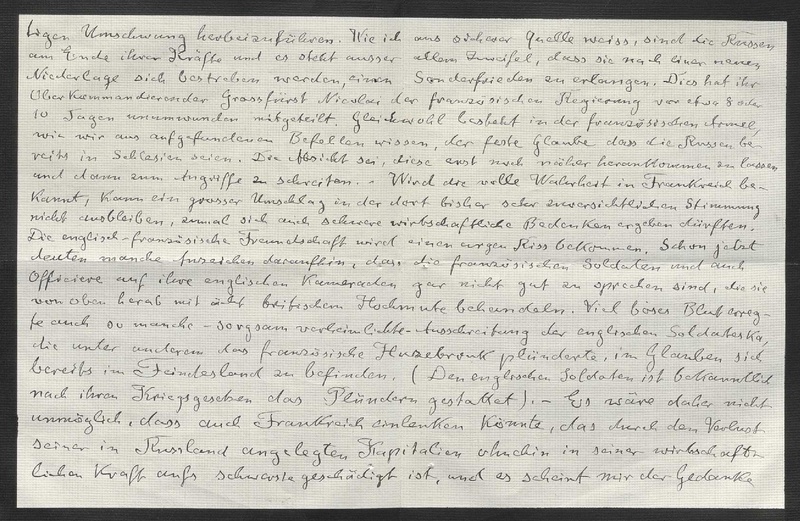 tigen Umschwung herbeizuführen. Wie ich aus sicherer Quelle weiss, sind die Russen
am Ende ihrer Kräfte und es steht ausser allem Zweifel, dass sie nach einer neuen
Niederlage sich bestreben werden, einen Sonderfrieden zu erlangen. Dies hat ihr
Oberkommandierender Grossfürst Nicolai der französischen Regierung vor etwa 8 oder
10 Tagen unumwunden mitgeteilt. Gleichwohl besteht in der französischen Armee,
wie wir aus aufgefundenen Befehlen wissen, der feste Glaube dass die Russen be-
reits in Schlesien seien. Die Absicht sei, diese erst noch näher herankommen zu lassen
und dann zum Angriffe zu schreiten. - Wird die volle Wahrheit in Frankreich be-
kannt, kann ein grosser Umschlag in der dort bisher sehr zuversichtlichen Stimmung
nicht ausbleiben, zumal sich auch schwere wirtschaftliche Bedenken ergeben dürften.
Die englisch-französische Freundschaft wird einen argen Riss bekommen. Schon jetzt
deuten manche Anzeichen daraufhin, dass die französischen Soldaten und auch
Officiere auf ihre englischen Kameraden gar nicht gut zu sprechen sind, die sie
von oben herab mit echt britischem Hochmute behandeln. Viel böses Blut erreg-
te auch so manche - sorgsam verheimlichte - Ausschreitung der englischen Soldateska,
die unter anderem das französische Hazebrouk plünderte, im Glauben sich
bereits im Feindesland zu befinden. (Den englischen Soldaten ist bekanntlich
nach ihren Kriegsgesetzen das Plündern gestattet). - Es wäre daher nicht
unmöglich, dass auch Frankreich einlenken könnte, das durch den Verlust
seiner in Russland angelegten Kapitalien ohnehin in seiner wirtschaft-
lichen Kraft aufs schwerste geschädigt ist, und es scheint mir der Gedanke